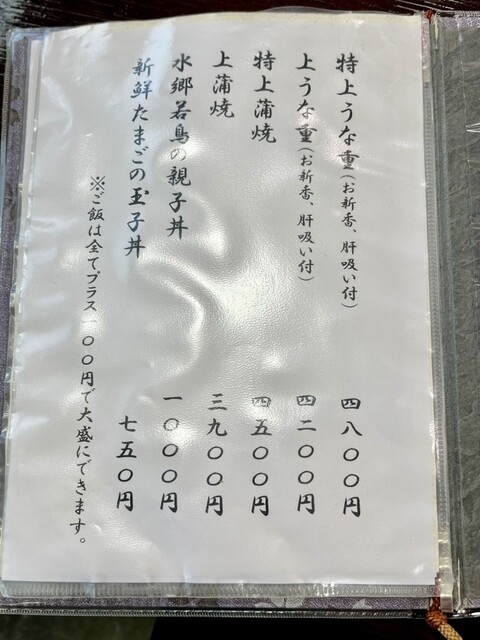 特上うな重(お新香、肝吸い付) 四八〇〇円
上うな重(お新香、肝吸い付) 四二〇〇円
特上蒲焼 四五〇〇円
上蒲焼 三九〇〇円
水郷若鳥の親子丼 一〇〇〇円
新鮮たまごの玉子丼 七五〇円
※ご飯は全てプラス一〇〇円で大盛にできます。